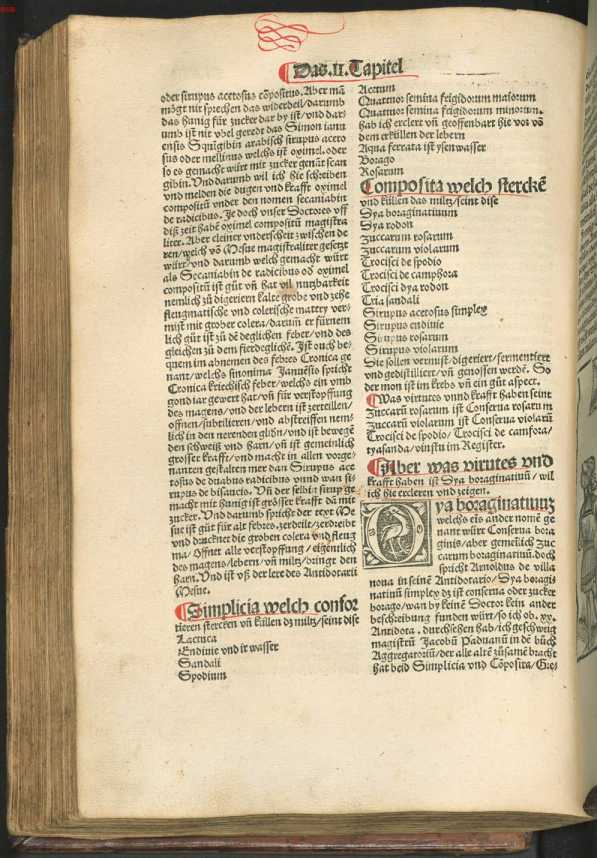 Das.II.Capitel
oder sirupus acetosus cōpositus. Aber mā
mögt nit sprechen das widerteil/darumb
das hunig für zucker dar by ist/vnd dar
umb ist nit vbel geredt das Simon ianu
ensis Squigibin arabisch sirupus aceto
sus oder mellinus welchs ist oximel. oder
so es gemacht würt mit zucker genāt scan
gibin. Vnd darumb wil ich hie schreiben
vnd melden die dugen vnd krafft oximel
compositū vnder den nomen secaniabin
de radicibus. Je doch vnser Doctores vff
diß zeit habē oximel compositū magistra
liter. Aber cleiner vnderscheit zwischen de
ren/welch vō Mesue magistraliter gesetzt
würt/vnd darumb welch gemacht würt
als Secaniabin de radicibus od oximel
compositū ist güt vn̄ hat vil nutzbarkeit
nemlich zü digeriern kalte grobe vnd zehe
fleugmatische vnd colerische matery ver-
mist mit grober colera/darum̄ er fürnem
lich güt ist zü dē deglichen feber/vnd des
gleichen zü dem fierdeglichē. Ist ouch be-
quem im abnomen des febres Cronica ge
nant/welchs sinonima Januēsis spricht
Cronica kriechisch feber/welchs ein vmb
gond iar gewert hat/vn̄ für verstopffung
des magens/vnd der lebern ist zerteillen/
offnen/subtilieren/vnd abstreiffen nem-
lich in den nerenden glidn/vnd ist bewegē
den schweiß vnd harn/vn̄ ist gemeinlich
grosser krafft/vnd macht in allen vorge-
nanten gestalten mer dan Sirupus ace
tosus de duabus radicibus vnnd wan si-
rupus de bisancis. Vn̄ der selbig sirup ge
macht mit hunig ist grösser krafft dā mit
zucker. Vnd darumb spricht der text Me
sue ist güt für alt febres. zerdeilt/zerdreibt
vnd druckner die groben colera vnd fleug
ma/Offnet alle verstopffung/eigentlich
des magens/lebern/vn̄ miltz/bringt den
harn. Vnd ist vß der lere des Antidotarii
Mesue.
Simplicia welch confor
tieren stercken vn̄ küllen dz miltz/seint dise
Lactuca
Endiuie vnd ir wasser
Sandali
Spodium
Acetum
Quattuor semina frigidorum maiorum
Quattuor semina frigidorum minorum.
hab ich erclert vn̄ geoffenbart hie vor vō
dem erküllen der lebern
Aqua ferrata ist ysenwasser
Borago
Rosarum
Composita welch sterckē
vnd küllen das miltz/seint dise
Dya boraginatiuum
Dya rodon
Zuccarum rosarum
Zuccarum violarum
Trocisci de spodio
Trocisci de camphora
Trocisci dya rodon
Tria sandali
Sirupus acetosus simplex
Sirupus endiuie
Sirupus rosarum
Sirupus violarum
Sie sollen vermist/digeriert/fermentiert
vnd gedistilliert/vn̄ genossen werdē. So
der mon ist im krebs vn̄ ein güt aspect.
Was virtutes vnnd krafft haben seint
Zuccarū rosarum ist Conserua rosarum
Zuccarū violarum ist Conserua violarū
Trocisci de spodio/Trocisci de camfora/
tryasanda/vinstu im Register.
Aber was virutes vnd
krafft haben ist Dya boraginatiuū/wil
ich hie ercleren vnd zeigen.
Dya boraginatiuum
welchs eīs ander nomē ge
nant würt Conserua bora
ginis/aber gemelich Zuc
carum boraginatiuū. doch
spricht Arnoldus de villa
noua in seinē Antidotario/Dya boragi
natiuū simplex dz ist conserua oder zucker
borago/wan by keinē Doctor kein ander
beschreibung funden würt/so ich ob. xx.
Antidota. durchsehen hab/ich geschweig
magistrū Jacobū Paduanū in dē büch
Aggregatoriū/der alle alrē zūsamē bracht
hat beid Simplicia vnd Cōposita/Gre/